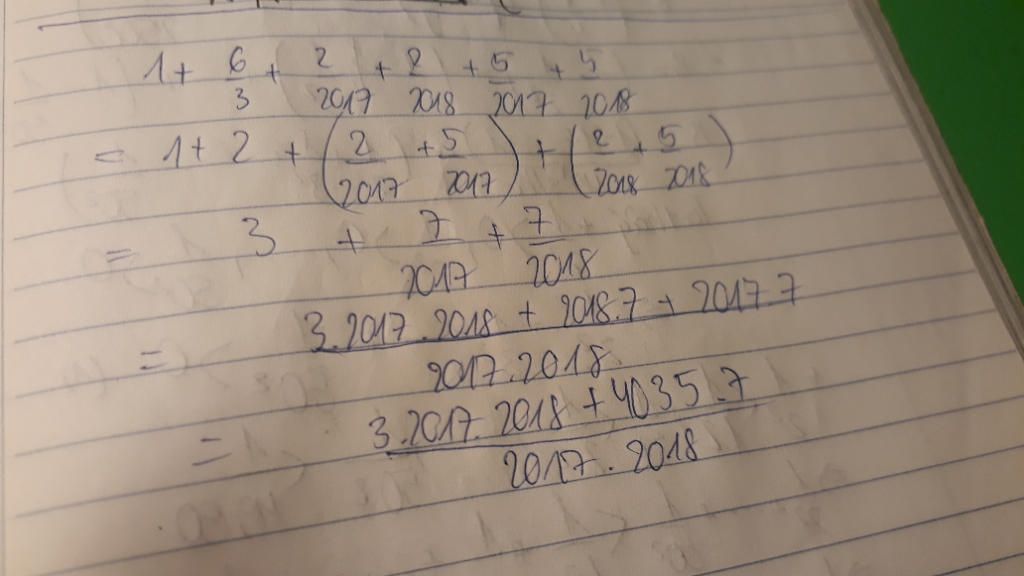 1 + 6/3 + 2/2017 + 2/2018 + 5/2017 + 5/2018
= 1 + 2 + (2/2017 + 5/2017) + (2/2018 + 5/2018)
= 3 + 7/2017 + 7/2018
= (3.2017.2018 + 2018.7 + 2017.7)/(2017.2018)
= (3.2017.2018 + 4035.7)/(2017.2018)